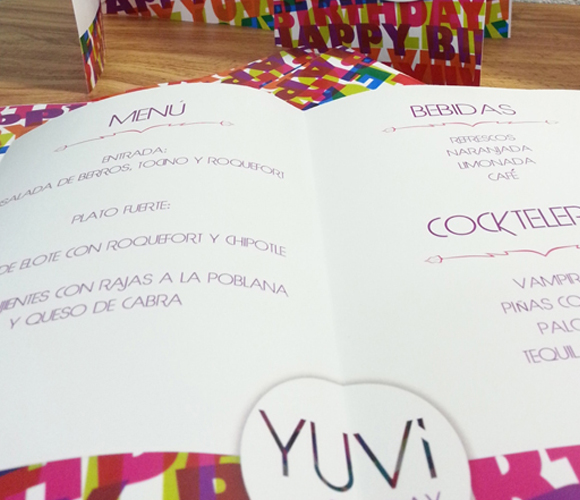 BIRTHDAY
HAPPY BI
MENÚ
ENTRADA:
SALADA DE BERROS, TOCINO Y ROQUEFORT
PLATO FUERTE:
DE ELOTE CON ROQUEFORT Y CHIPOTLE
IENTES CON RAJAS A LA POBLANA
Y QUESO DE CABRA
BEBIDAS
REFRESCOS
NARANJADA
LIMONADA
CAFÉ
COCKTELER
VAMPIR
PIÑAS CO
PALO
TEQUIL
YUVi